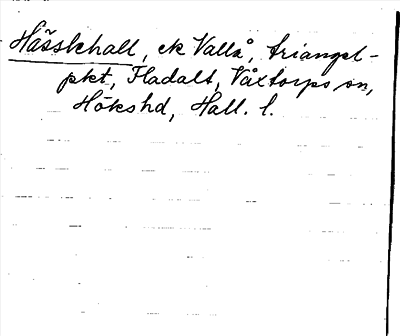 Hässlehall, ek Vallå, triangel-
pkt, Fladalt, Våxtorps sn,
Höks hd, Hall. l.